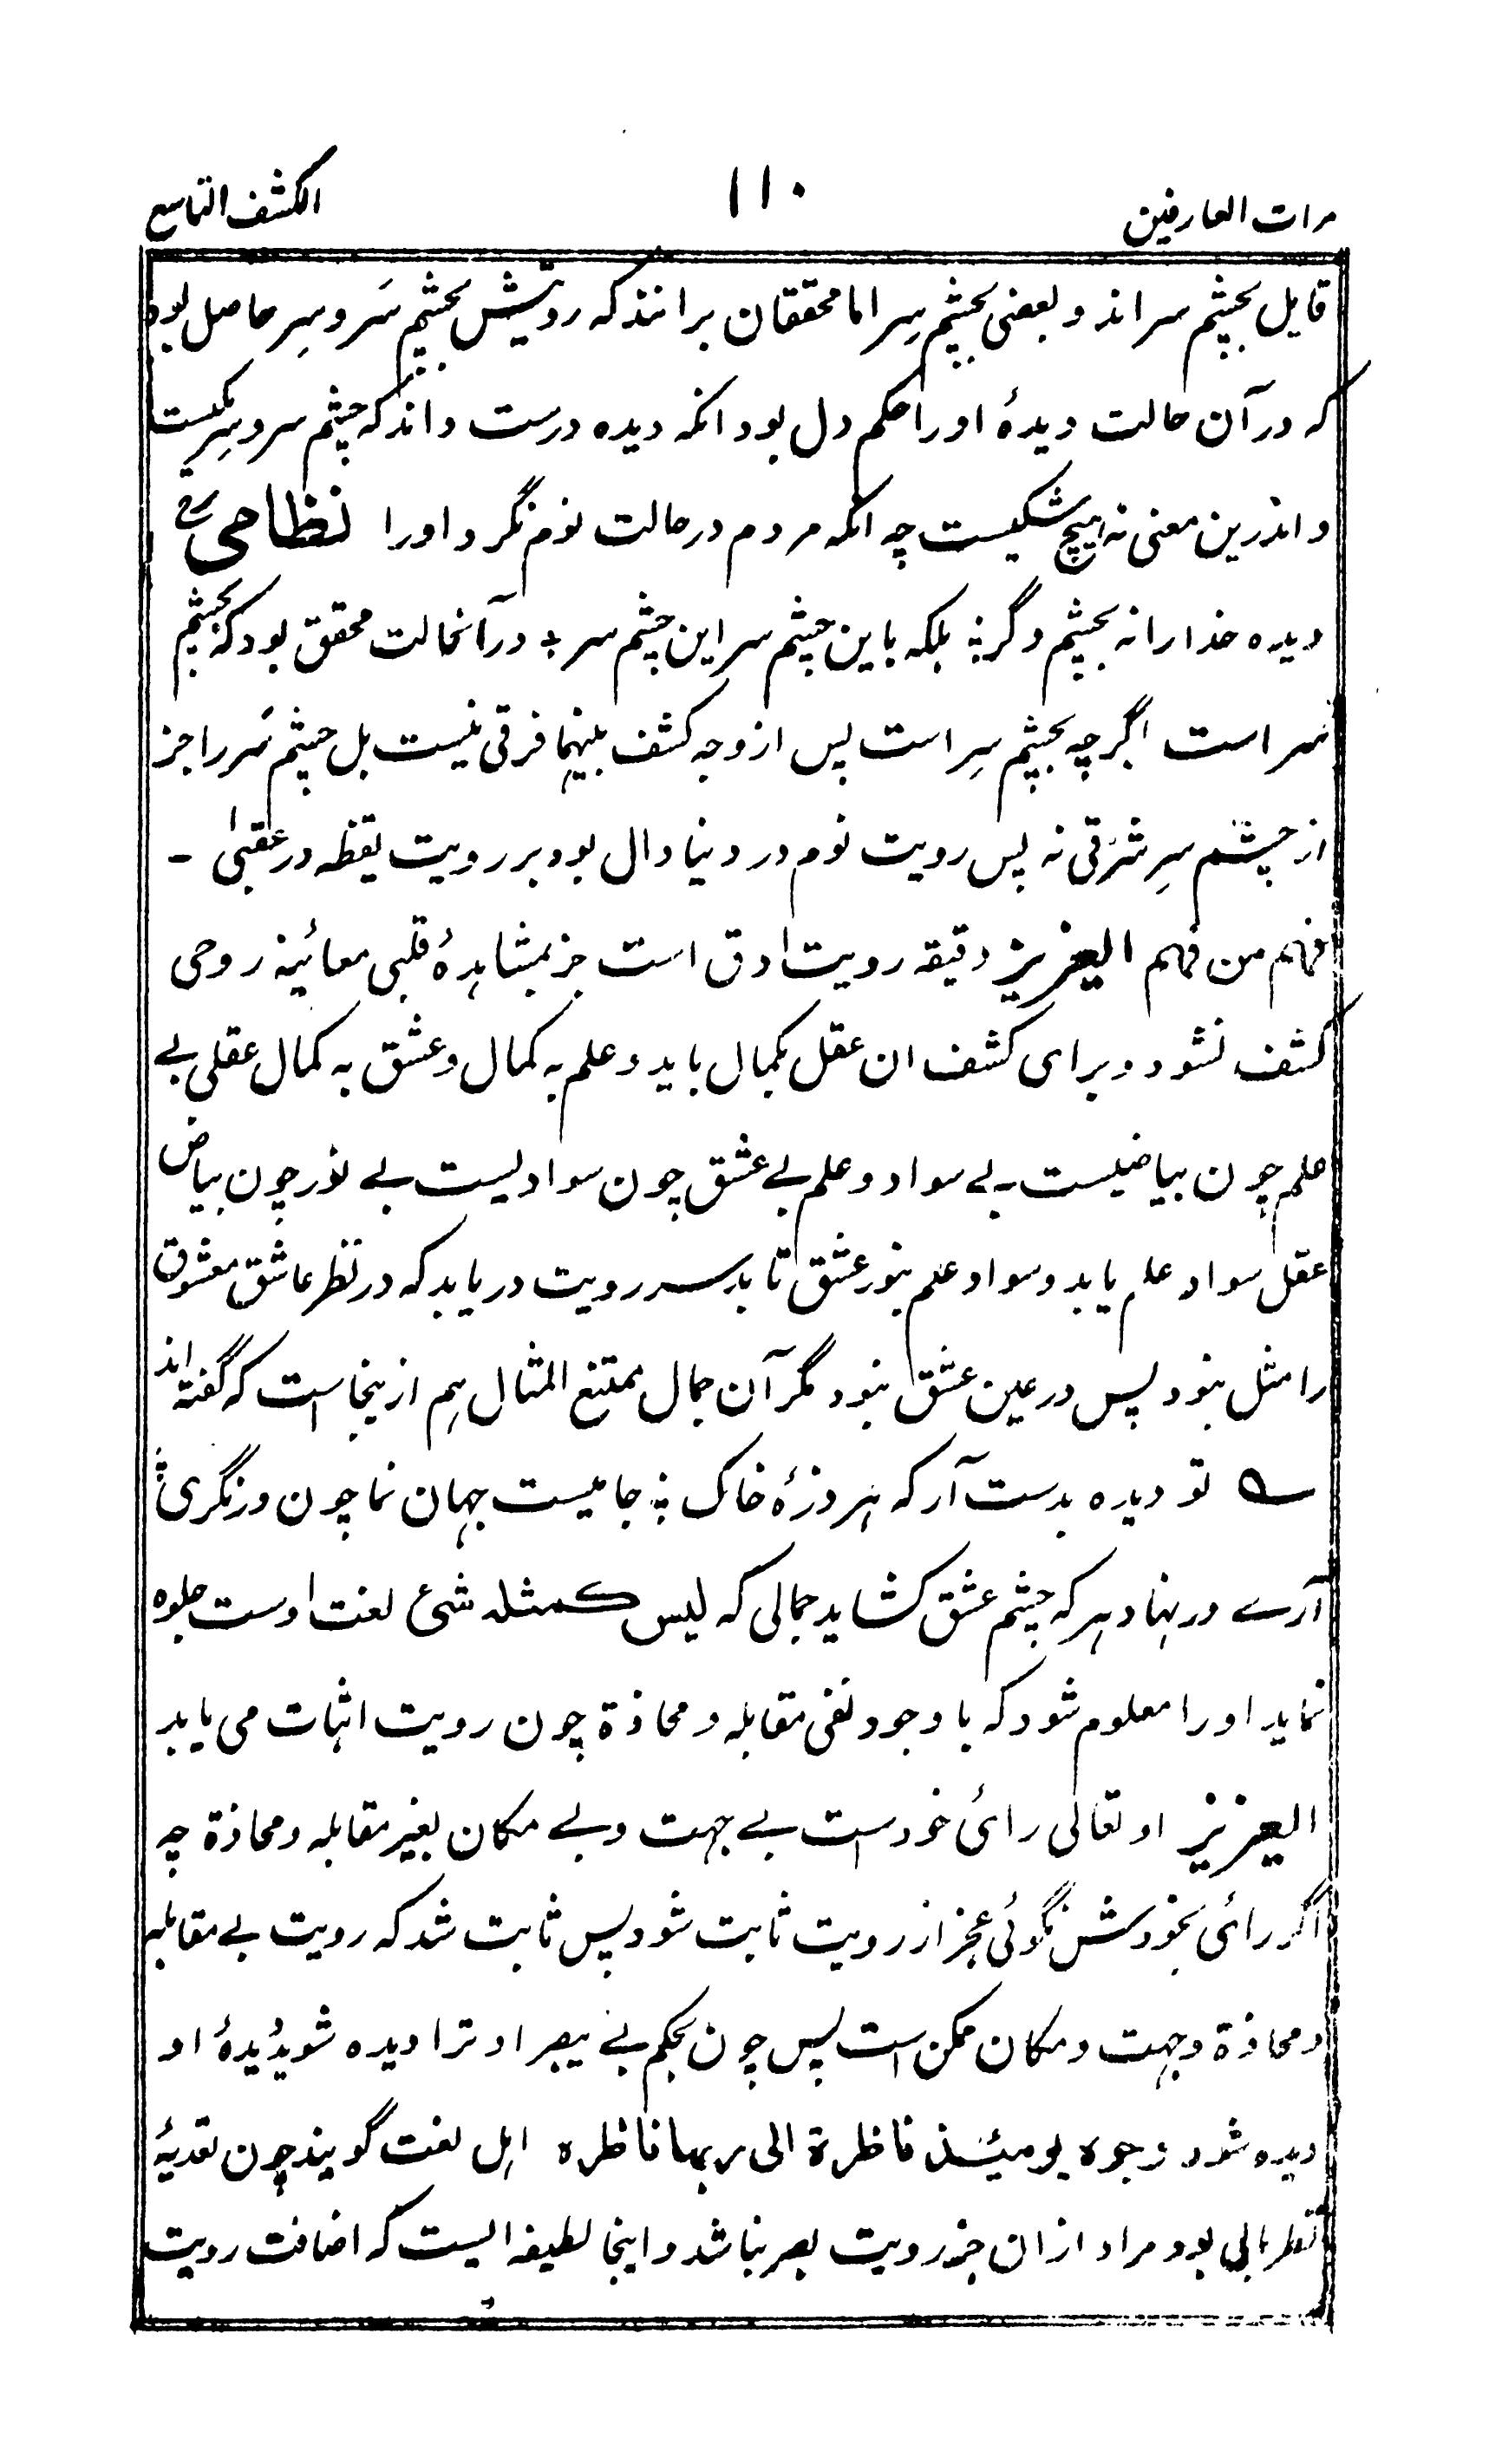 مرات العارفین ۱۱۰ الکشف التاسع
قایل بچشم سراند و بعضی بچشم سِر اما محققان برانند که رویتش بچشم سَر و سِر حاصل بود
که در آن حالت دیدهٔ او را حکم دل بود انکه دیده درست داند که چشم سر و سِر یکیست
و اندرین معنی نه هیچ شکیست چه انکه مردم در حالت نوم نگرد او را نظامیؒ
دیده خدا را نه بچشم دگر ؞ بلکه باین چشم سر این چشم سر ؞ در آنحالت محقق بود که بچشم
سر است اگرچه بچشم سِر است پس از وجه کشف بینهما فرقی نیست بل چشم سَر را جز
از چشم سِر شرقی نه پس رویت نوم در دنیا دال بود بر رویت یقظه در عقبیٰ -
فهم من فهم العزیز دقیقه رویت ادق است جز بمشاهدهٔ قلبی معائنه روحی
کشف نشود و برای کشف ان عقل بکمال باید و علم به کمال و عشق به کمال عقلی بے
علم چون بیاضیست بے سواد و علم بے عشق چون سوادیست بے نور چون بیاض
عقل سواد علم یابد و سواد علم بنور عشق تابد سر رویت دریابد که در نظر عاشق معشوق
را مثل نبود پس در عین عشق نبود مگر آن جمال ممتنع المثال هم ازینجا است که گفته اند
؎ تو دیده بدست آر که هر ذرهٔ خاک ؞ جامیست جهان نما چون درنگری ؞
آرے در نهاد هر که چشم عشق کشاید جمالی که لیس کمثله شیء نعت اوست جلوه
نماید او را معلوم شود که با وجود نفی مقابله و محاذة چون رویت اثبات می یابد
العزیز او تعالی رائی خود است بے جهت و بے مکان بغیر مقابله و محاذة چه
اگر رائی بخودش نگوئی عجز از رویت ثابت شود پس ثابت شد که رویت بے مقابله
و محاذة و جهت و مکان ممکن است پس چون بحکم بے یبصر او ترا دیده شوید دیدهٔ او
دیده شود وجوه یومئذ ناظرة الی ربها ناظره اهل لغت گویند چون تعدیهٔ
نظر بالی بود مراد از ان جز رویت بصر نباشد و اینجا لطیفه ایست که اضافت رویت